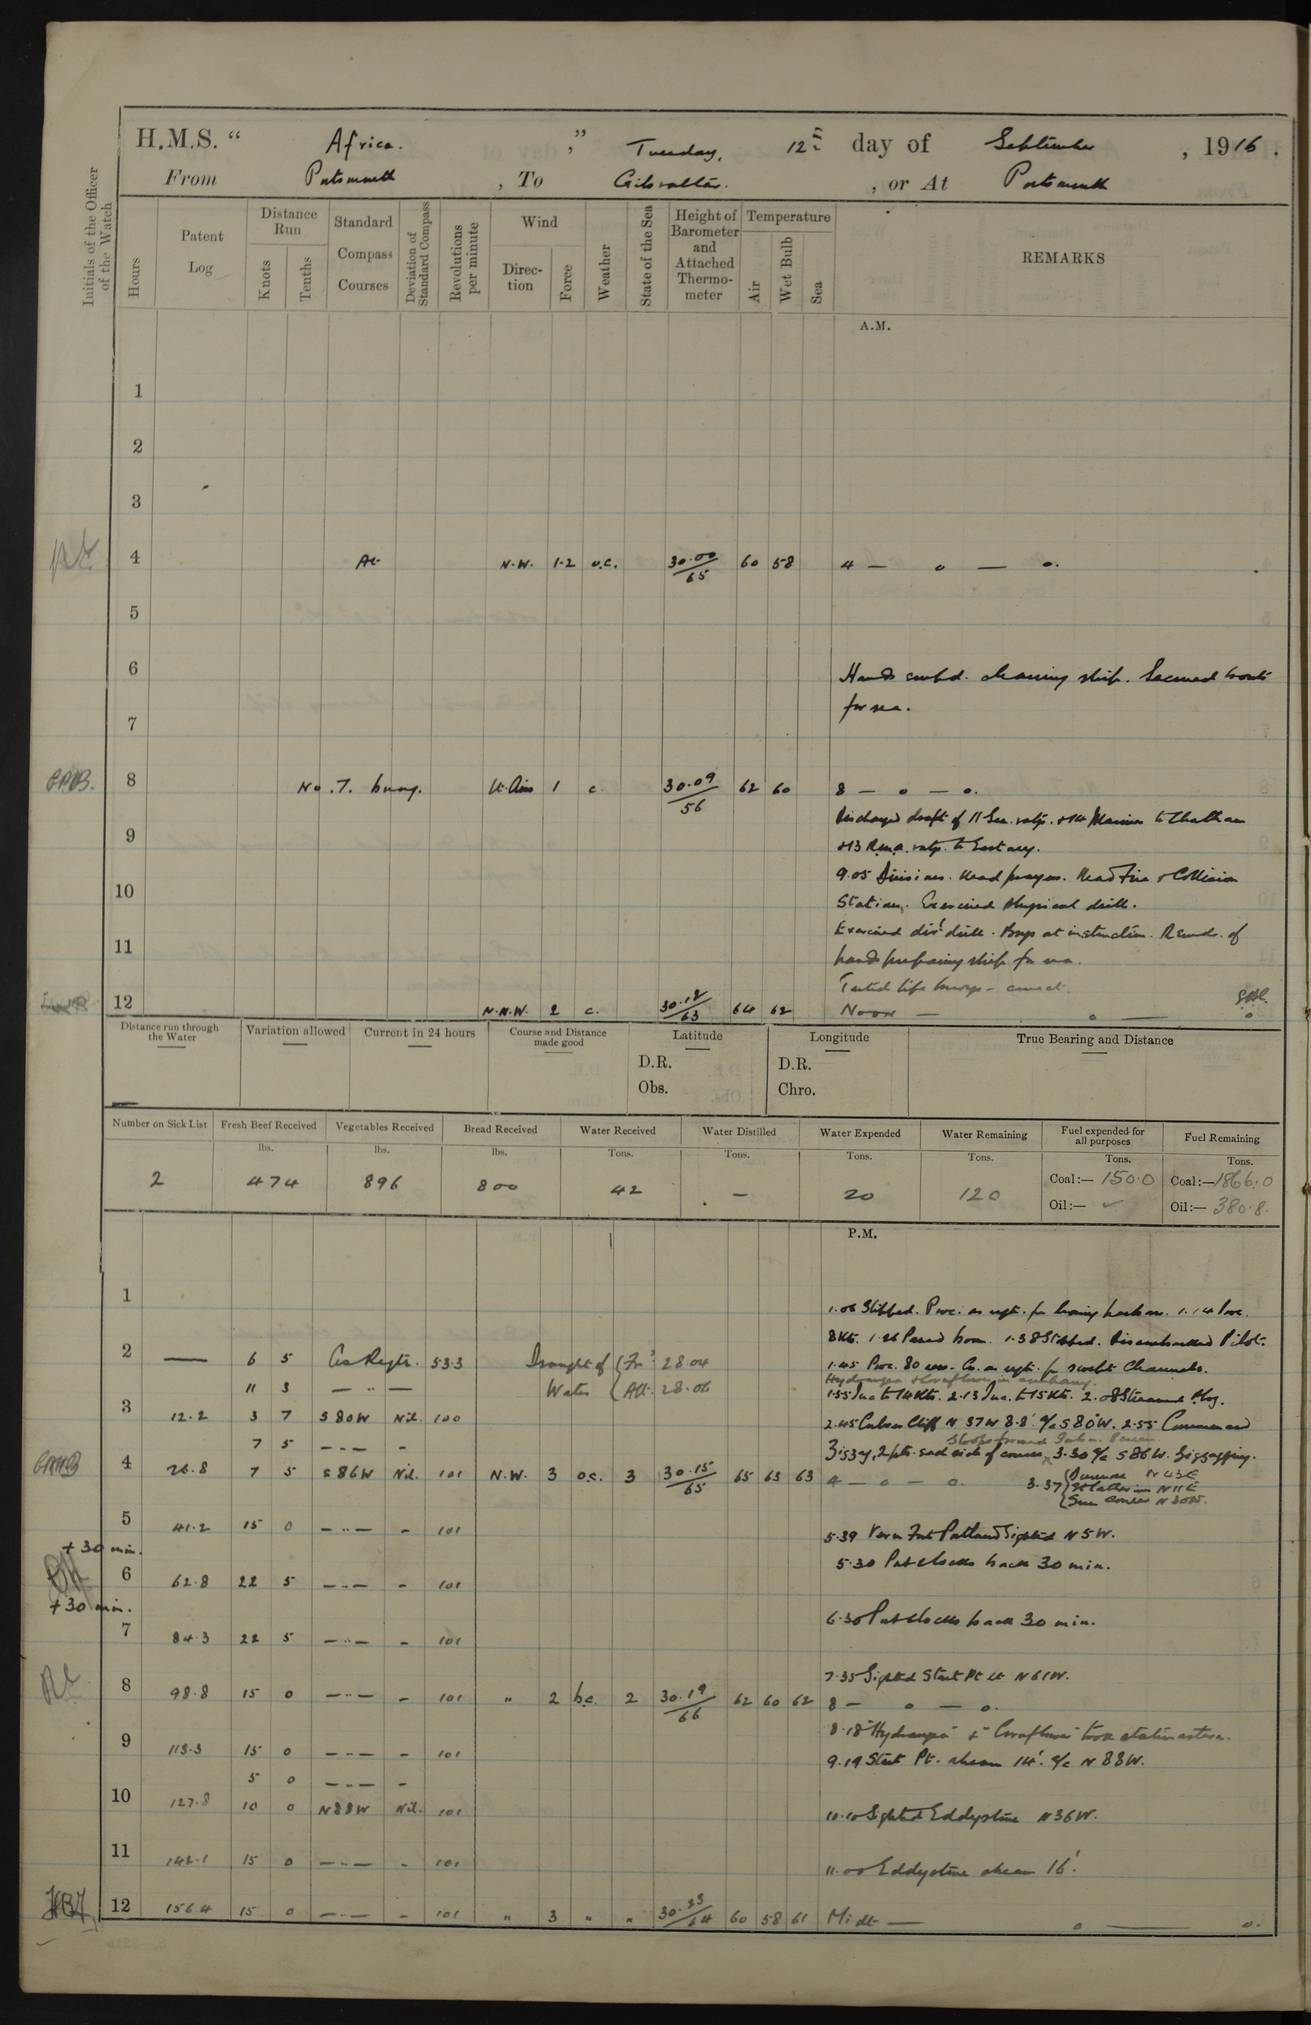 H.M.S. “ Africa. ,” Tuesday, 12th day of September , 1916.
From Portsmouth , To Gibraltar. , or At Portsmouth
Initials of the Officer of the Watch
Hours
Patent Log
Distance Run
Knots
Tenths
Standard Compass Courses
Deviation of Standard Compass
Revolutions per minute
Wind
Direc-tion
Force
Weather
State of the Sea
Height of Barometer and Attached Thermo-meter
Temperature
Air
Wet Bulb
Sea
REMARKS
A.M.
1
2
3
4 At N.W. 1-2 o.c. 30.00/65 60 58 4 — o — o.
5
6 Hands empd. cleaning ship. Secured boats
for sea.
7
8 No. 7. buoy. Lt. Airs 1 c. 30.09/56 62 60 8 — o — o.
Discharged draft of 11 Sea. ratgs. +14 Marines to Chatham
9 +13 R.M.A. ratgs. to Eastney.
9.05 Divisions. Read prayers. Read Fire & Collision
10 Stations. Exercised physical drill.
Exercised divl drill. Boys at instruction. Remdr. of
11 hands preparing ship for sea.
Tested life buoys - correct.
12 N.N.W. 2 c. 30.12/63 64 62 Noon — o — o
Distance run through the Water
Variation allowed
Current in 24 hours
Course and Distance made good
Latitude
D.R.
Obs.
Longitude
D.R.
Chro.
True Bearing and Distance
Number on Sick List
Fresh Beef Received
Vegetables Received
Bread Received
Water Received
Water Distilled
Water Expended
Water Remaining
Fuel expended for all purposes
Fuel Remaining
lbs. lbs. lbs. Tons. Tons. Tons. Tons. Tons. Tons.
2 474 896 800 42 — 20 120 Coal:— 150.0 Coal:— 1866.0
Oil:— ✓ Oil:— 380.8.
P.M.
1 1.06 Slipped. Proc. as reqte. for leaving harbour. 1.14 Proc.
8 Kts. 1.26 Passed boom. 1.38 Stopped. Disembarked Pilot.
2 — 6 5 As Reqte. 53.3 Draught of Water Ford 28.04 Aft. 28.06 1.45 Proc. 80 revs. Co. as reqte. for swept Channels.
Hydrangea & Cornflower in company.
11 3 — „ — 1.55 Inc. to 14 Kts. 2.13 Inc. to 15 Kts. 2.08 Streamed Plog.
3 12.2 3 7 S 80 W Nil. 100 2.45 Culver Cliff N 37 W 8.8' a/c S 80 W. 2.55 Commenced
7 5 — „ — - Zigzag, 2 pts. each side of course. 3.30 a/c S 86 W. Zigzagging.
4 26.8 7 5 S 86 W Nil. 101 N.W. 3 o.c. 3 30.15/65 65 63 63 4 — o — o. 3.37 Dunnose N 43 E St Catherines N 11 E
5 41.2 15 0 — „ — - 101 5.39 Portland Sighted N 5 W.
+ 30 min. 5.30 Put clocks back 30 min.
6 62.8 22 5 — „ — - 101
+ 30 min. 6.30 Put clocks back 30 min.
7 84.3 22 5 — „ — - 101
7.35 Sighted Start Pt. Lt N 61 W.
8 98.8 15 0 — „ — - 101 „ 2 b.c. 2 30.19/66 62 60 62 8 — o — o.
8.18 "Hydrangea" & "Cornflower" took station astern.
9 113.3 15 0 — „ — - 101 9.19 Start Pt. abeam 14'. a/c N 88 W.
5 0 — „ — -
10 127.8 10 0 N 88 W Nil. 101 10.10 Sighted Eddystone N 36 W.
11 142.1 15 0 — „ — - 101 11.00 Eddystone abeam 16'.
12 156.4 15 0 — „ — - 101 „ 3 „ „ 30.23/64 60 58 61 Midt — o — o.